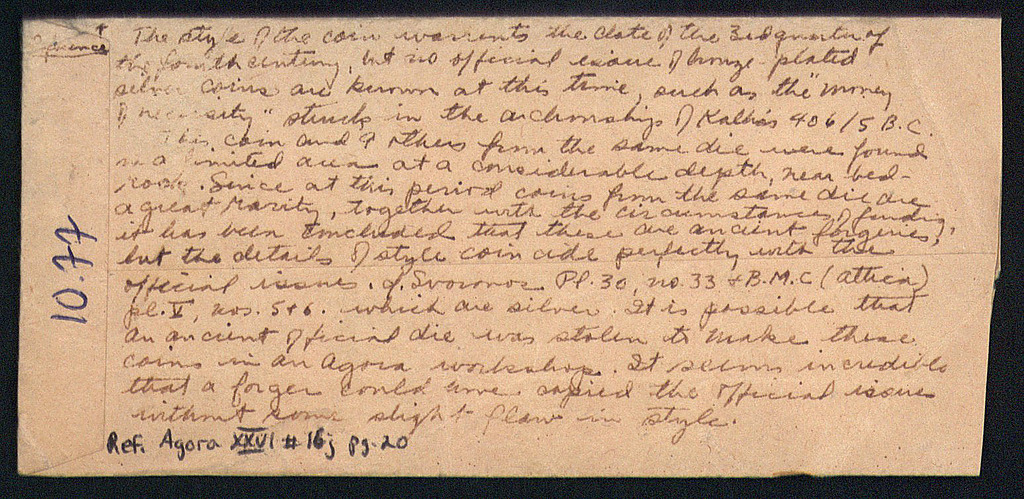 Reference The style of the coin warrants the date of the 3rd quarter of
the fourth century, but no official issue of bronze-plated
silver coins are known at this time, such as the "money
of necessity" struck in the archonship of Kallias 406/5 B.C.
This coin and 9 others from the same die were found
in a limited area at a considerable depth, near bed-
rock. Since at this period coins from the same die are
a great rarity, together with the circumstances of finding
it has been concluded that these are ancient forgeries,
but the details of style coincide perfectly with the
official issues. cf. Svoronos Pl. 30, no. 33 + B.M.C (Attica)
pl. V, nos. 5+6. which are silver. It is possible that
an ancient official die was stolen to make these
coins in an Agora workshop. It seems incredible
that a forger could have copied the official issues
without some slight flaw in style.
Ref. Agora XXVI # 16j pg. 20
10.77